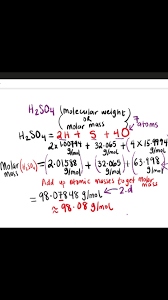 H₂SO₄ (molecular weight)
OR
molar mass
7 atoms
H₂SO₄ = 2H + S + 4O
2 x 1.00794 g/mol + 32.065 g/mol + 4 x 15.9994 g/mol
Molar mass (H₂SO₄) = (2.01588 g/mol) + (32.065 g/mol) + (63.998 g/mol)
Add up atomic masses to get molar mass
= 98.07848 g/mol 2.d
≈ 98.08 g/mol